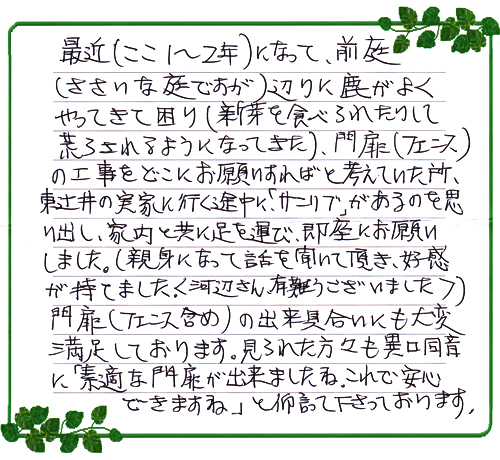 最近(ここ1〜2年)になって、前庭
(ささいな庭ですが)辺りに鹿がよく
やってきて困り(新芽を食べられたりして
荒らされるようになってきた)、門扉(フェンス)
の工事をどこにお願いすればと考えていた所、
東辻井の実家に行く途中に「サニリブ」があるのを思
い出し、家内と共に足を運び、即座にお願い
しました。(親身になって話を聞いて頂き、好感
が持てました。〈河辺さん有難うございました〉)
門扉(フェンス含め)の出来具合いにも大変
満足しております。見られた方々も異口同音
に「素適な門扉が出来ましたね。これで安心
できますね」と仰言って下さっております。